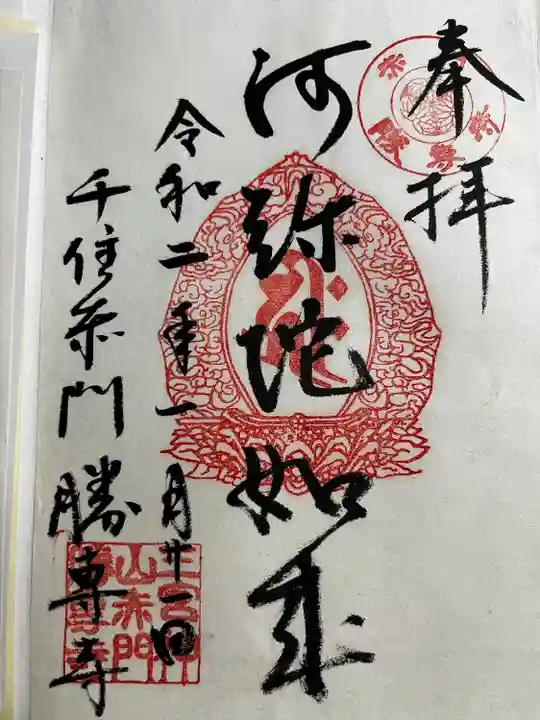 奉拝
阿弥陀如来
令和二年一月廿一日
千住赤門勝専寺
三宮神
山赤門
勝専寺